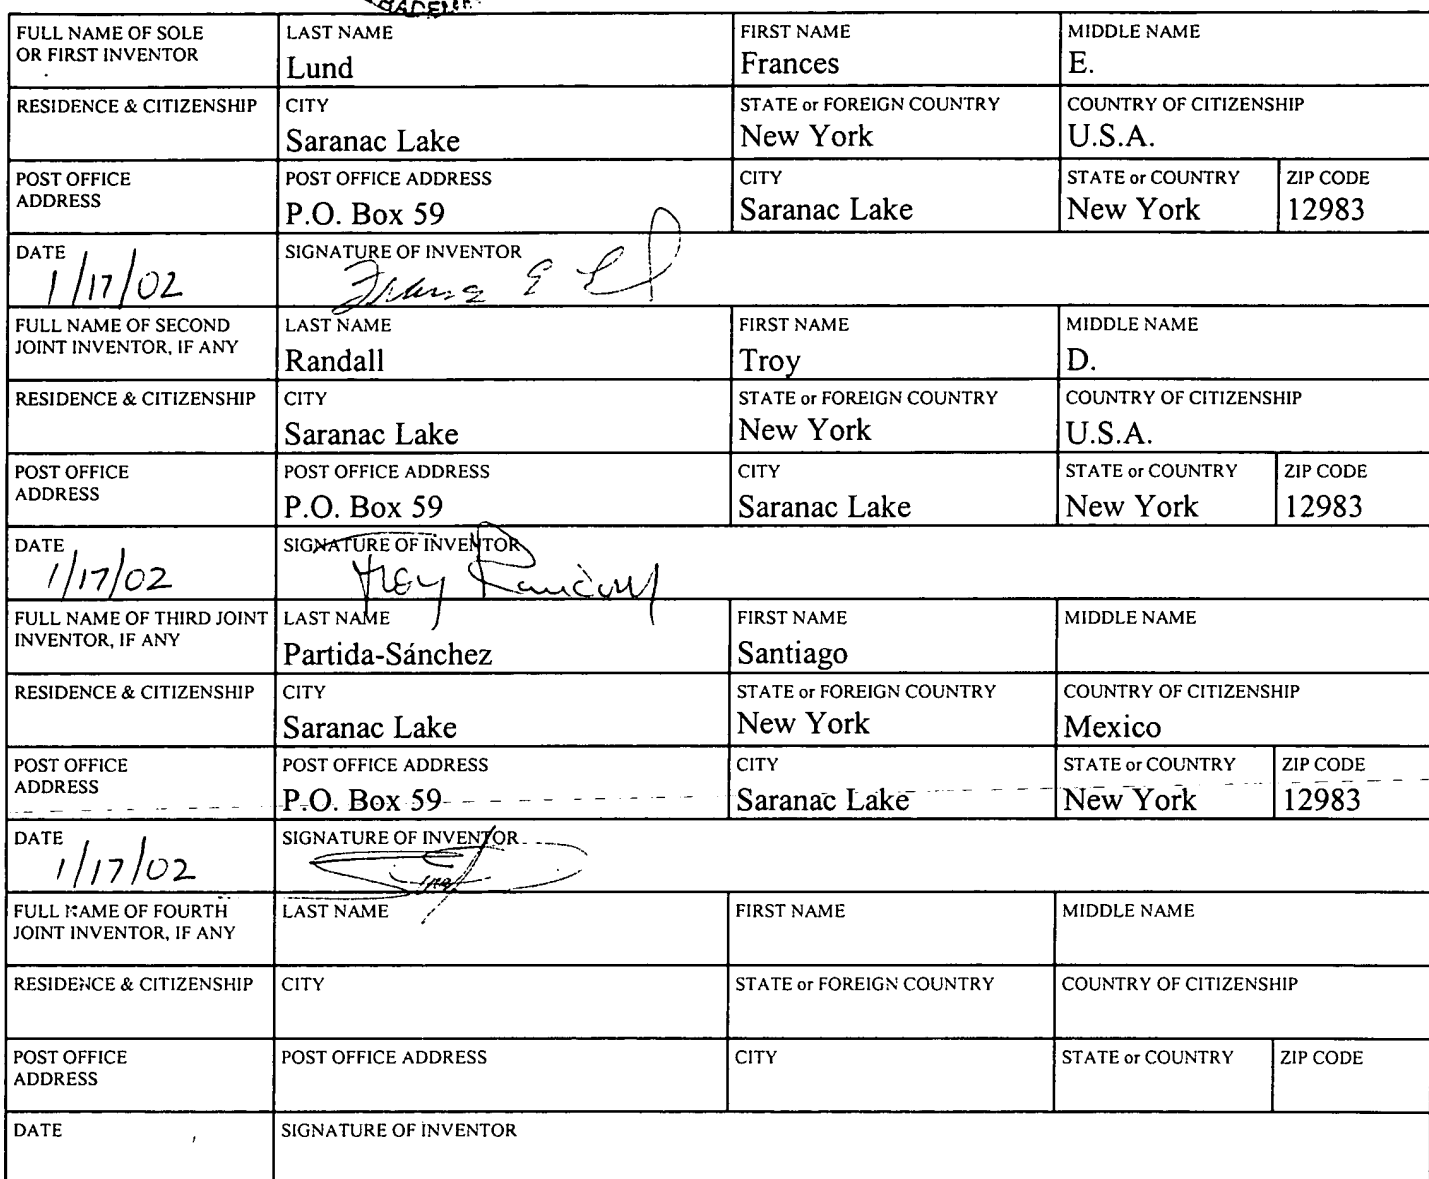 FULL NAME OF SOLE OR FIRST INVENTOR LAST NAME Lund FIRST NAME Frances MIDDLE NAME E.
RESIDENCE & CITIZENSHIP CITY Saranac Lake STATE or FOREIGN COUNTRY New York COUNTRY OF CITIZENSHIP U.S.A.
POST OFFICE ADDRESS POST OFFICE ADDRESS P.O. Box 59 CITY Saranac Lake STATE or COUNTRY New York ZIP CODE 12983
DATE 1/17/02 SIGNATURE OF INVENTOR
FULL NAME OF SECOND JOINT INVENTOR, IF ANY LAST NAME Randall FIRST NAME Troy MIDDLE NAME D.
RESIDENCE & CITIZENSHIP CITY Saranac Lake STATE or FOREIGN COUNTRY New York COUNTRY OF CITIZENSHIP U.S.A.
POST OFFICE ADDRESS POST OFFICE ADDRESS P.O. Box 59 CITY Saranac Lake STATE or COUNTRY New York ZIP CODE 12983
DATE 1/17/02 SIGNATURE OF INVENTOR Troy Randall
FULL NAME OF THIRD JOINT INVENTOR, IF ANY LAST NAME Partida-Sánchez FIRST NAME Santiago MIDDLE NAME
RESIDENCE & CITIZENSHIP CITY Saranac Lake STATE or FOREIGN COUNTRY New York COUNTRY OF CITIZENSHIP Mexico
POST OFFICE ADDRESS POST OFFICE ADDRESS P.O. Box 59 CITY Saranac Lake STATE or COUNTRY New York ZIP CODE 12983
DATE 1/17/02 SIGNATURE OF INVENTOR
FULL NAME OF FOURTH JOINT INVENTOR, IF ANY LAST NAME FIRST NAME MIDDLE NAME
RESIDENCE & CITIZENSHIP CITY STATE or FOREIGN COUNTRY COUNTRY OF CITIZENSHIP
POST OFFICE ADDRESS POST OFFICE ADDRESS CITY STATE or COUNTRY ZIP CODE
DATE SIGNATURE OF INVENTOR